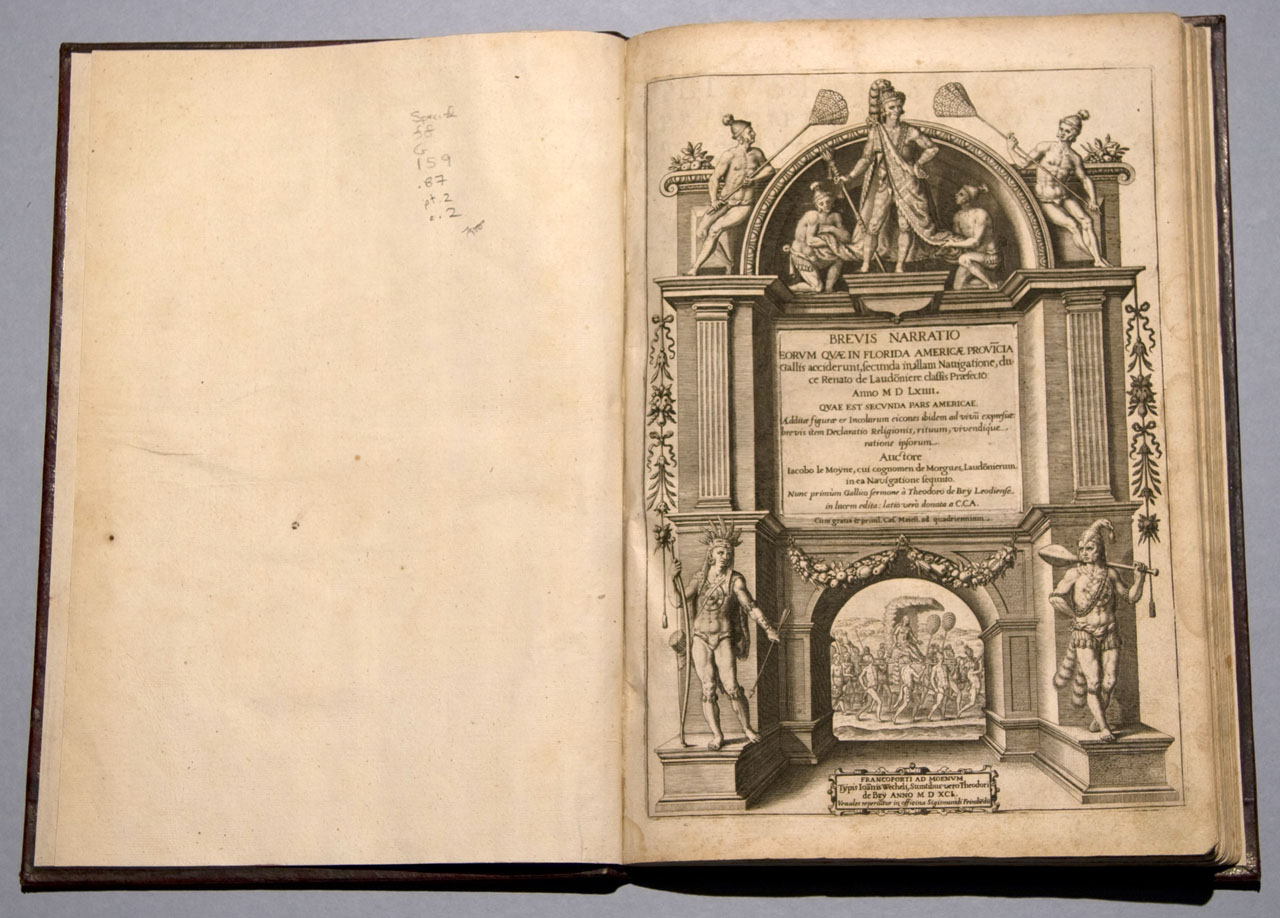 Special
ff
G
159
.B7
pt. 2
c. 2
BREVIS NARRATIO
EORVM QVÆ IN FLORIDA AMERICÆ PROVĪCIA
Gallis acciderunt, secunda in illam Nauigatione, du-
ce Renato de Laudōniere classis Præfecto:
Anno M D LXIIII.
QVAE EST SECVNDA PARS AMERICAE.
Additæ figuræ et Incolarum eicones ibidem ad vivū expressæ:
brevis item Declaratio Religionis, rituum, vivendique
ratione ipsorum.
Auctore
Iacobo le Moyne, cui cognomen de Morgues, Laudōnierum
in ea Navigatione sequuto.
Nunc primùm Gallico sermone à Theodoro de Bry Leodiense
in lucem edita: latio verò donata a C.C.A.
Cum gratia & privil. Cæs. Maiest. ad quadriennium.
FRANCOFORTI AD MOENVM
Typis Ioānis Wecheli, Sumtibus vero Theodori
de Bry ANNO M D XCI.
Venales reperiūtur in officina Sigismundi Feirabēdii